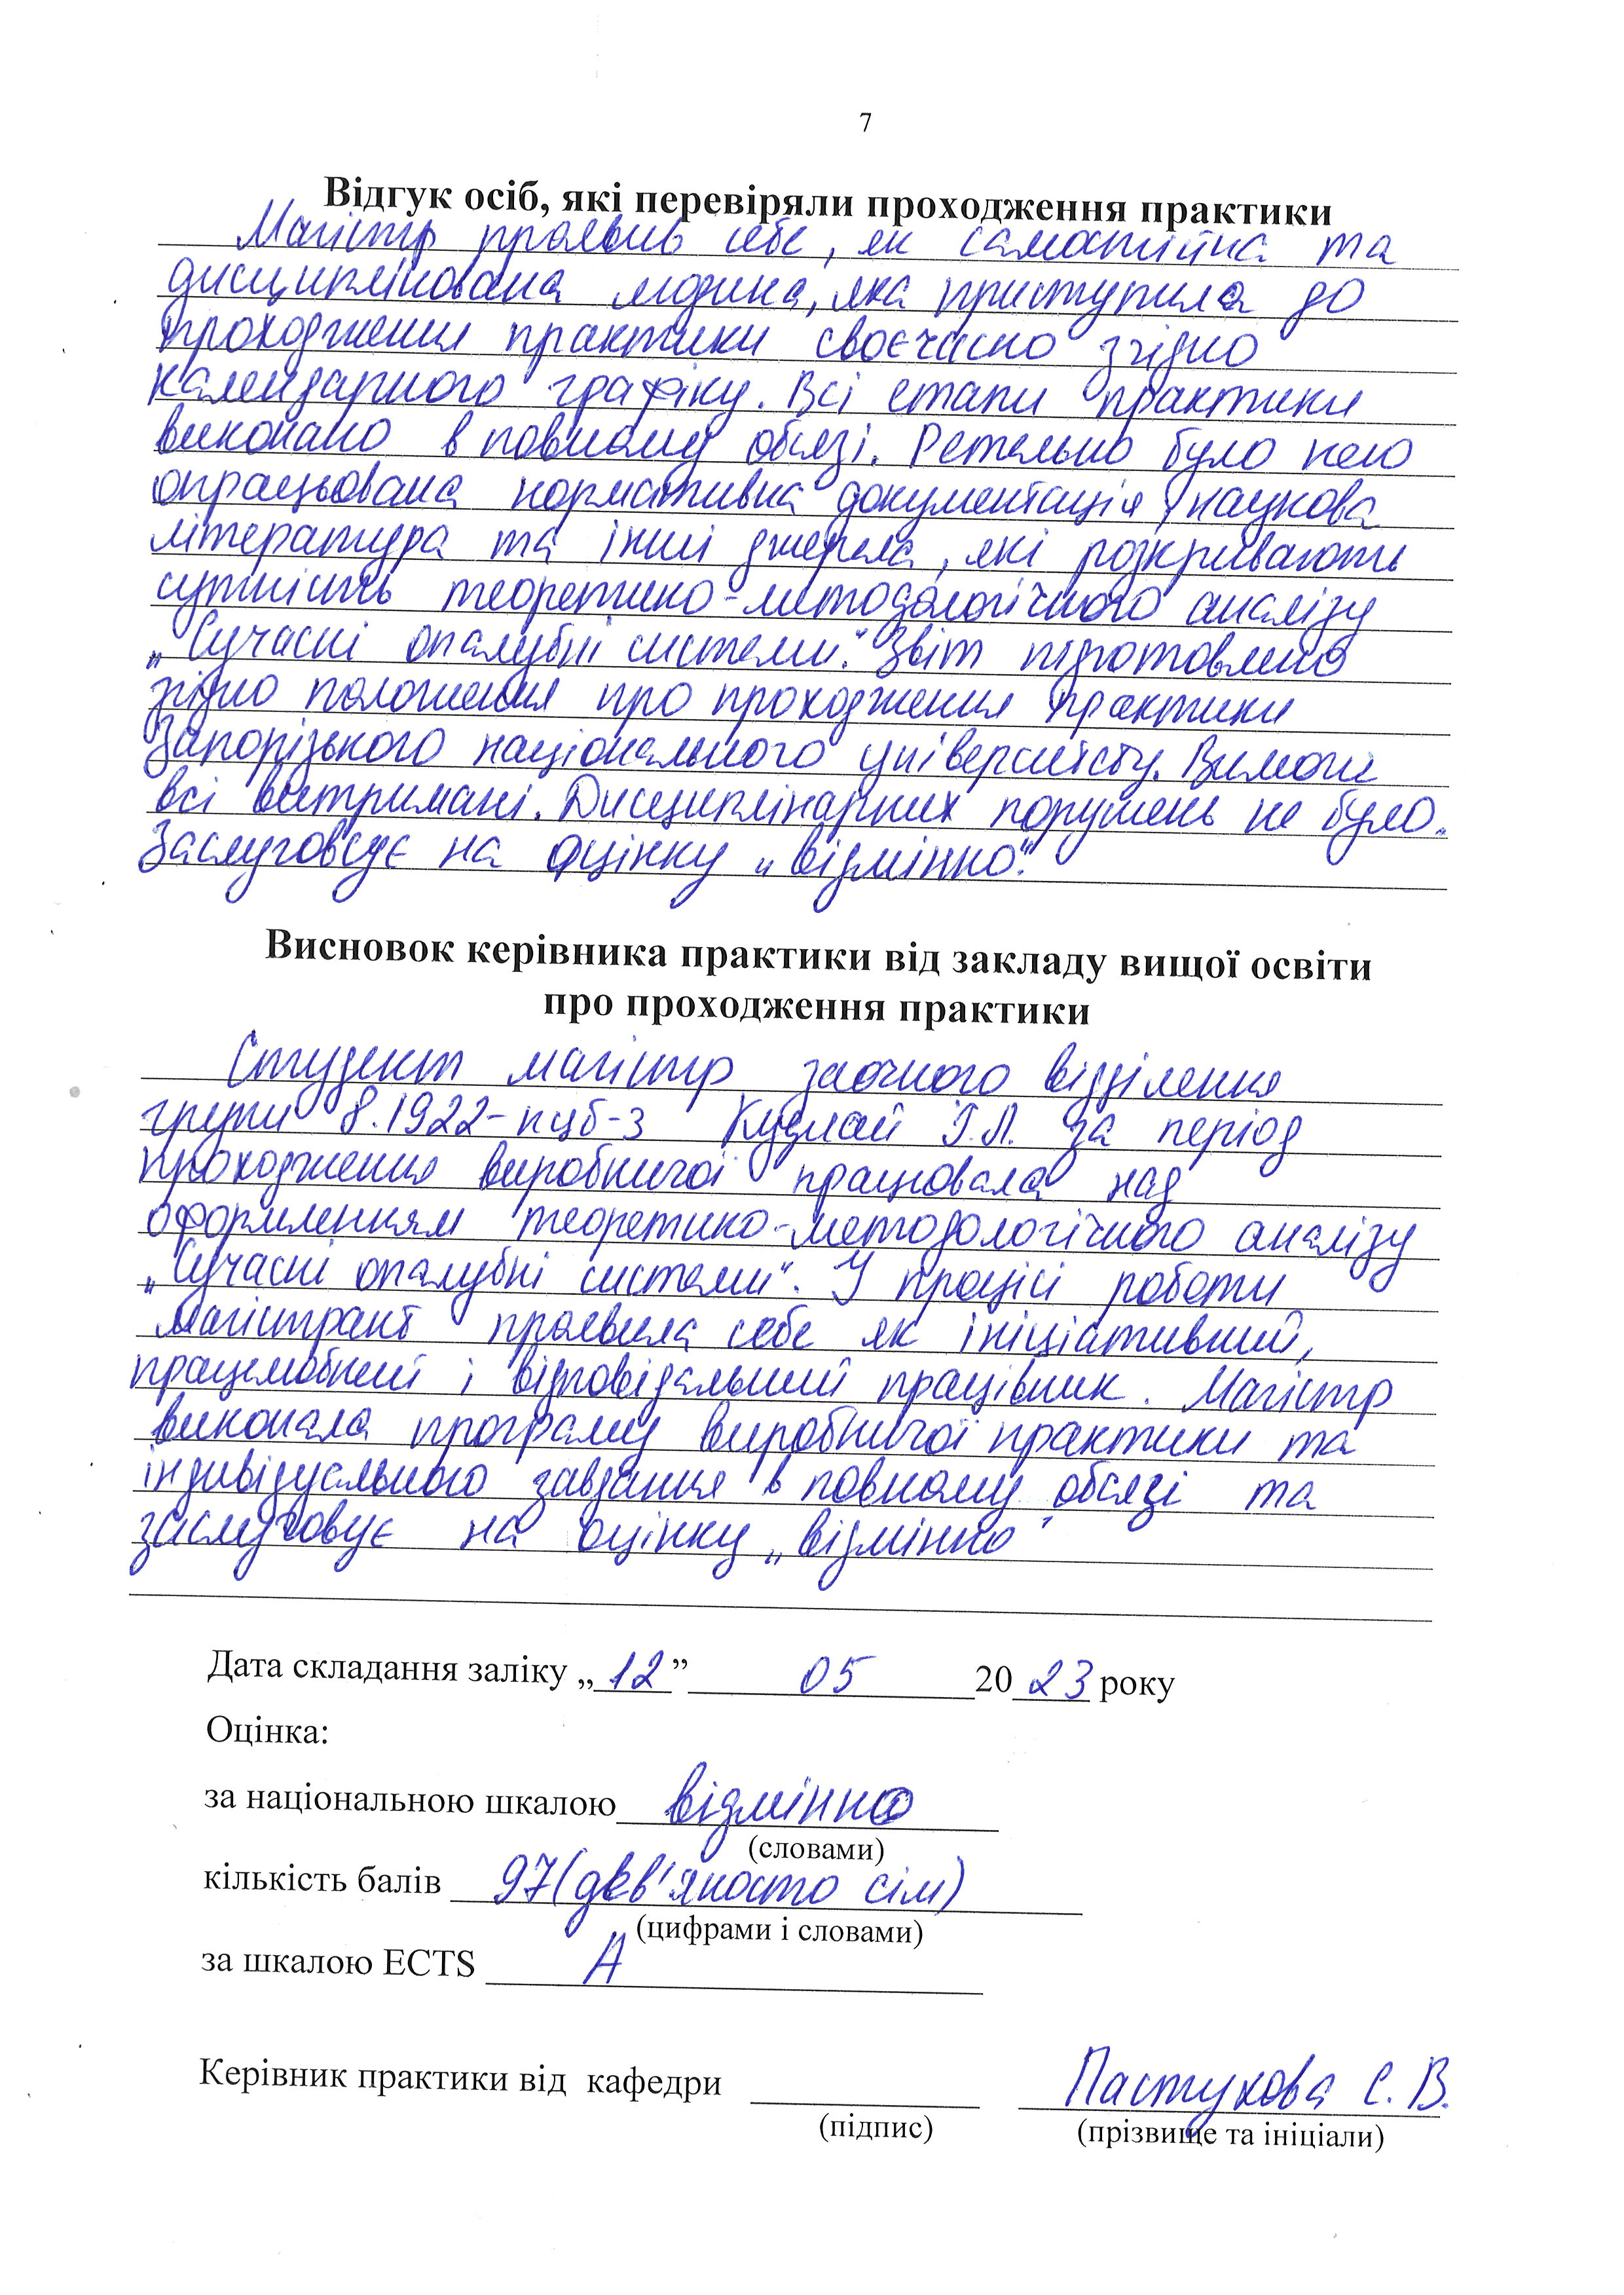 7
Відгук осіб, які перевіряли проходження практики
Магістр проявив себе, як самостійна та
дисциплінована людина, яка приступила до
проходження практики своєчасно згідно
календарного графіку. Всі етапи практики
виконано в повному обсязі. Ретельно було нею
опрацьована нормативна документація, наукова
література та інші джерела, які розкривають
сутність теоретико-методологічного аналізу
„Сучасні опалубні системи“. Звіт підготовлено
згідно положення про проходження практики
Запорізького національного університету. Вимоги
всі витримані. Дисциплінарних порушень не було.
Заслуговує на оцінку „відмінно“.
Висновок керівника практики від закладу вищої освіти
про проходження практики
Студент магістр заочного відділення
групи 8.1922-пцб-з Кудлай Г.Л. за період
проходження виробничої працювала над
оформленням теоретико-методологічного аналізу
„Сучасні опалубні системи“. У процісі роботи
магістрант проявила себе як ініціативний,
працелюбний і відповідальний працівник. Магістр
виконала програму виробничої практики та
індивідуального завдання в повному обсязі та
заслуговує на оцінку „відмінно“
Дата складання заліку „12” 05 2023 року
Оцінка:
за національною шкалою відмінно
(словами)
кількість балів 97(дев'яносто сім)
(цифрами і словами)
за шкалою ECTS А
Керівник практики від кафедри Пастухова С. В.
(підпис) (прізвище та ініціали)